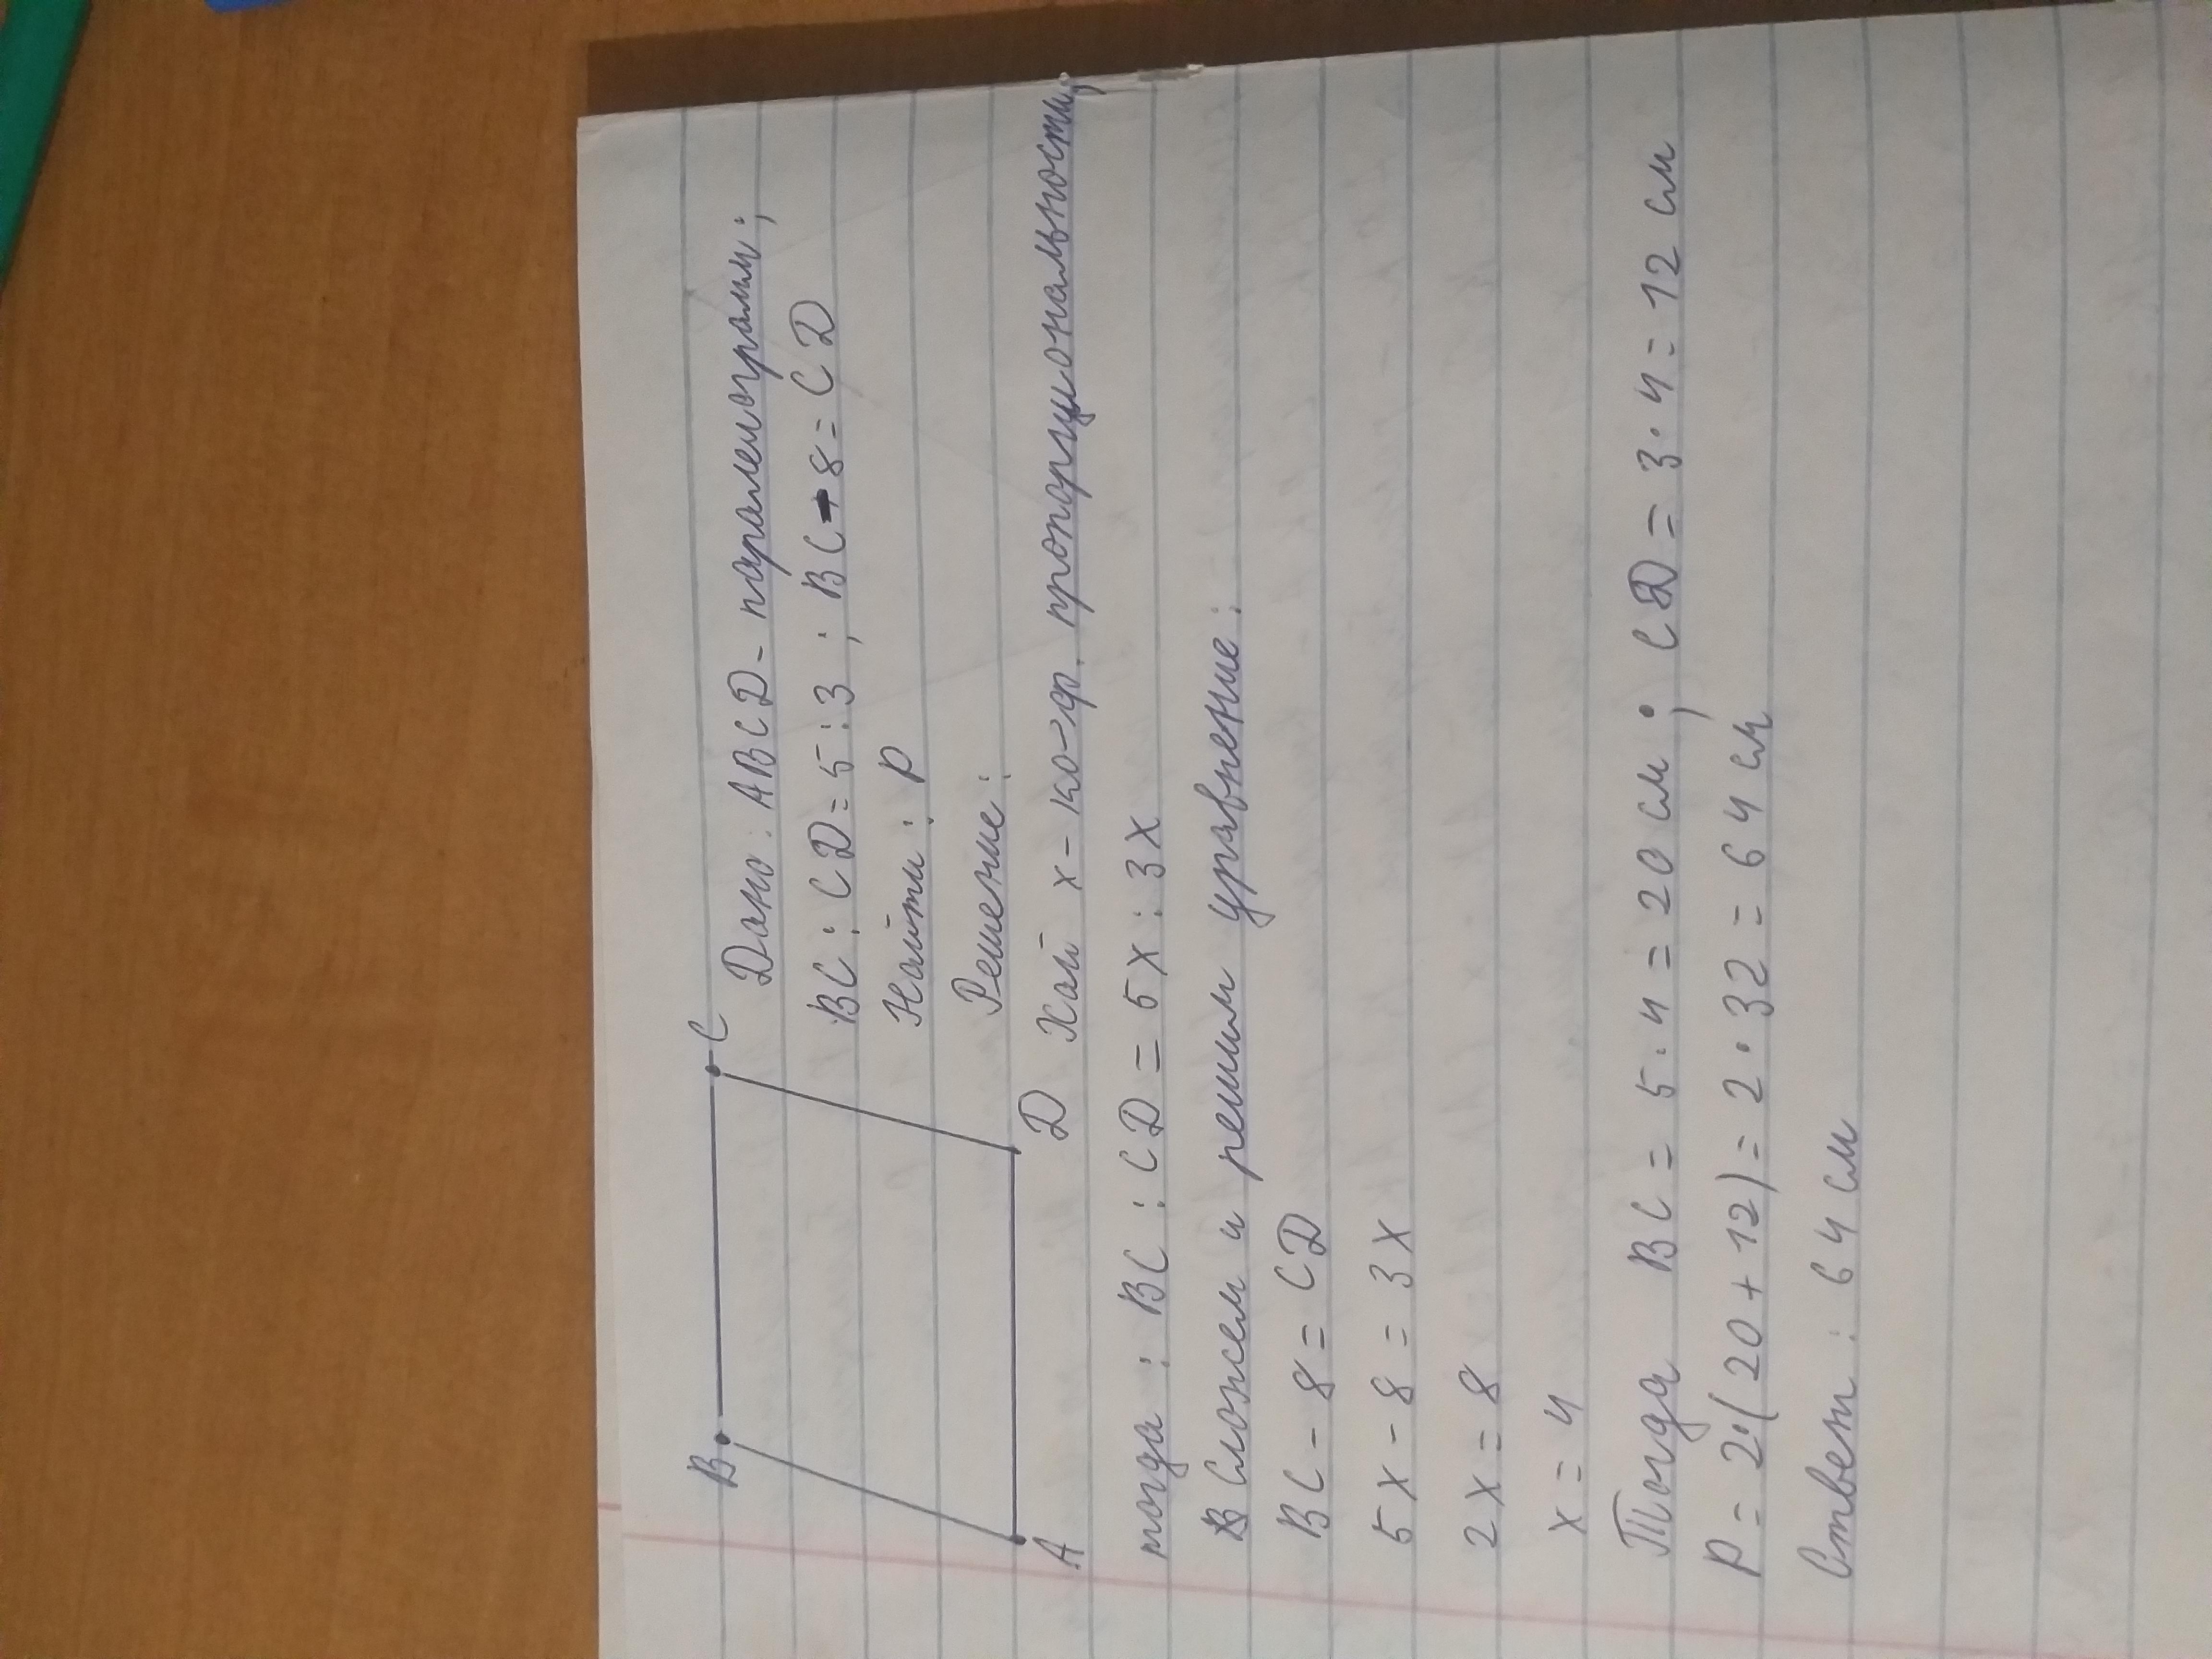 B C
Дано: ABCD - паралелограмм;
BC : CD = 5 : 3 ; BC - 8 = CD
Найти: P
Решение:
A D Хай x - ко-эф. пропорциональности,
тогда: BC : CD = 5x : 3x
Сложем и решим уравнение:
BC - 8 = CD
5x - 8 = 3x
2x = 8
x = 4
Тогда BC = 5 · 4 = 20 см; CD = 3 · 4 = 12 см
P = 2·(20 + 12) = 2 · 32 = 64 см
Ответ: 64 см